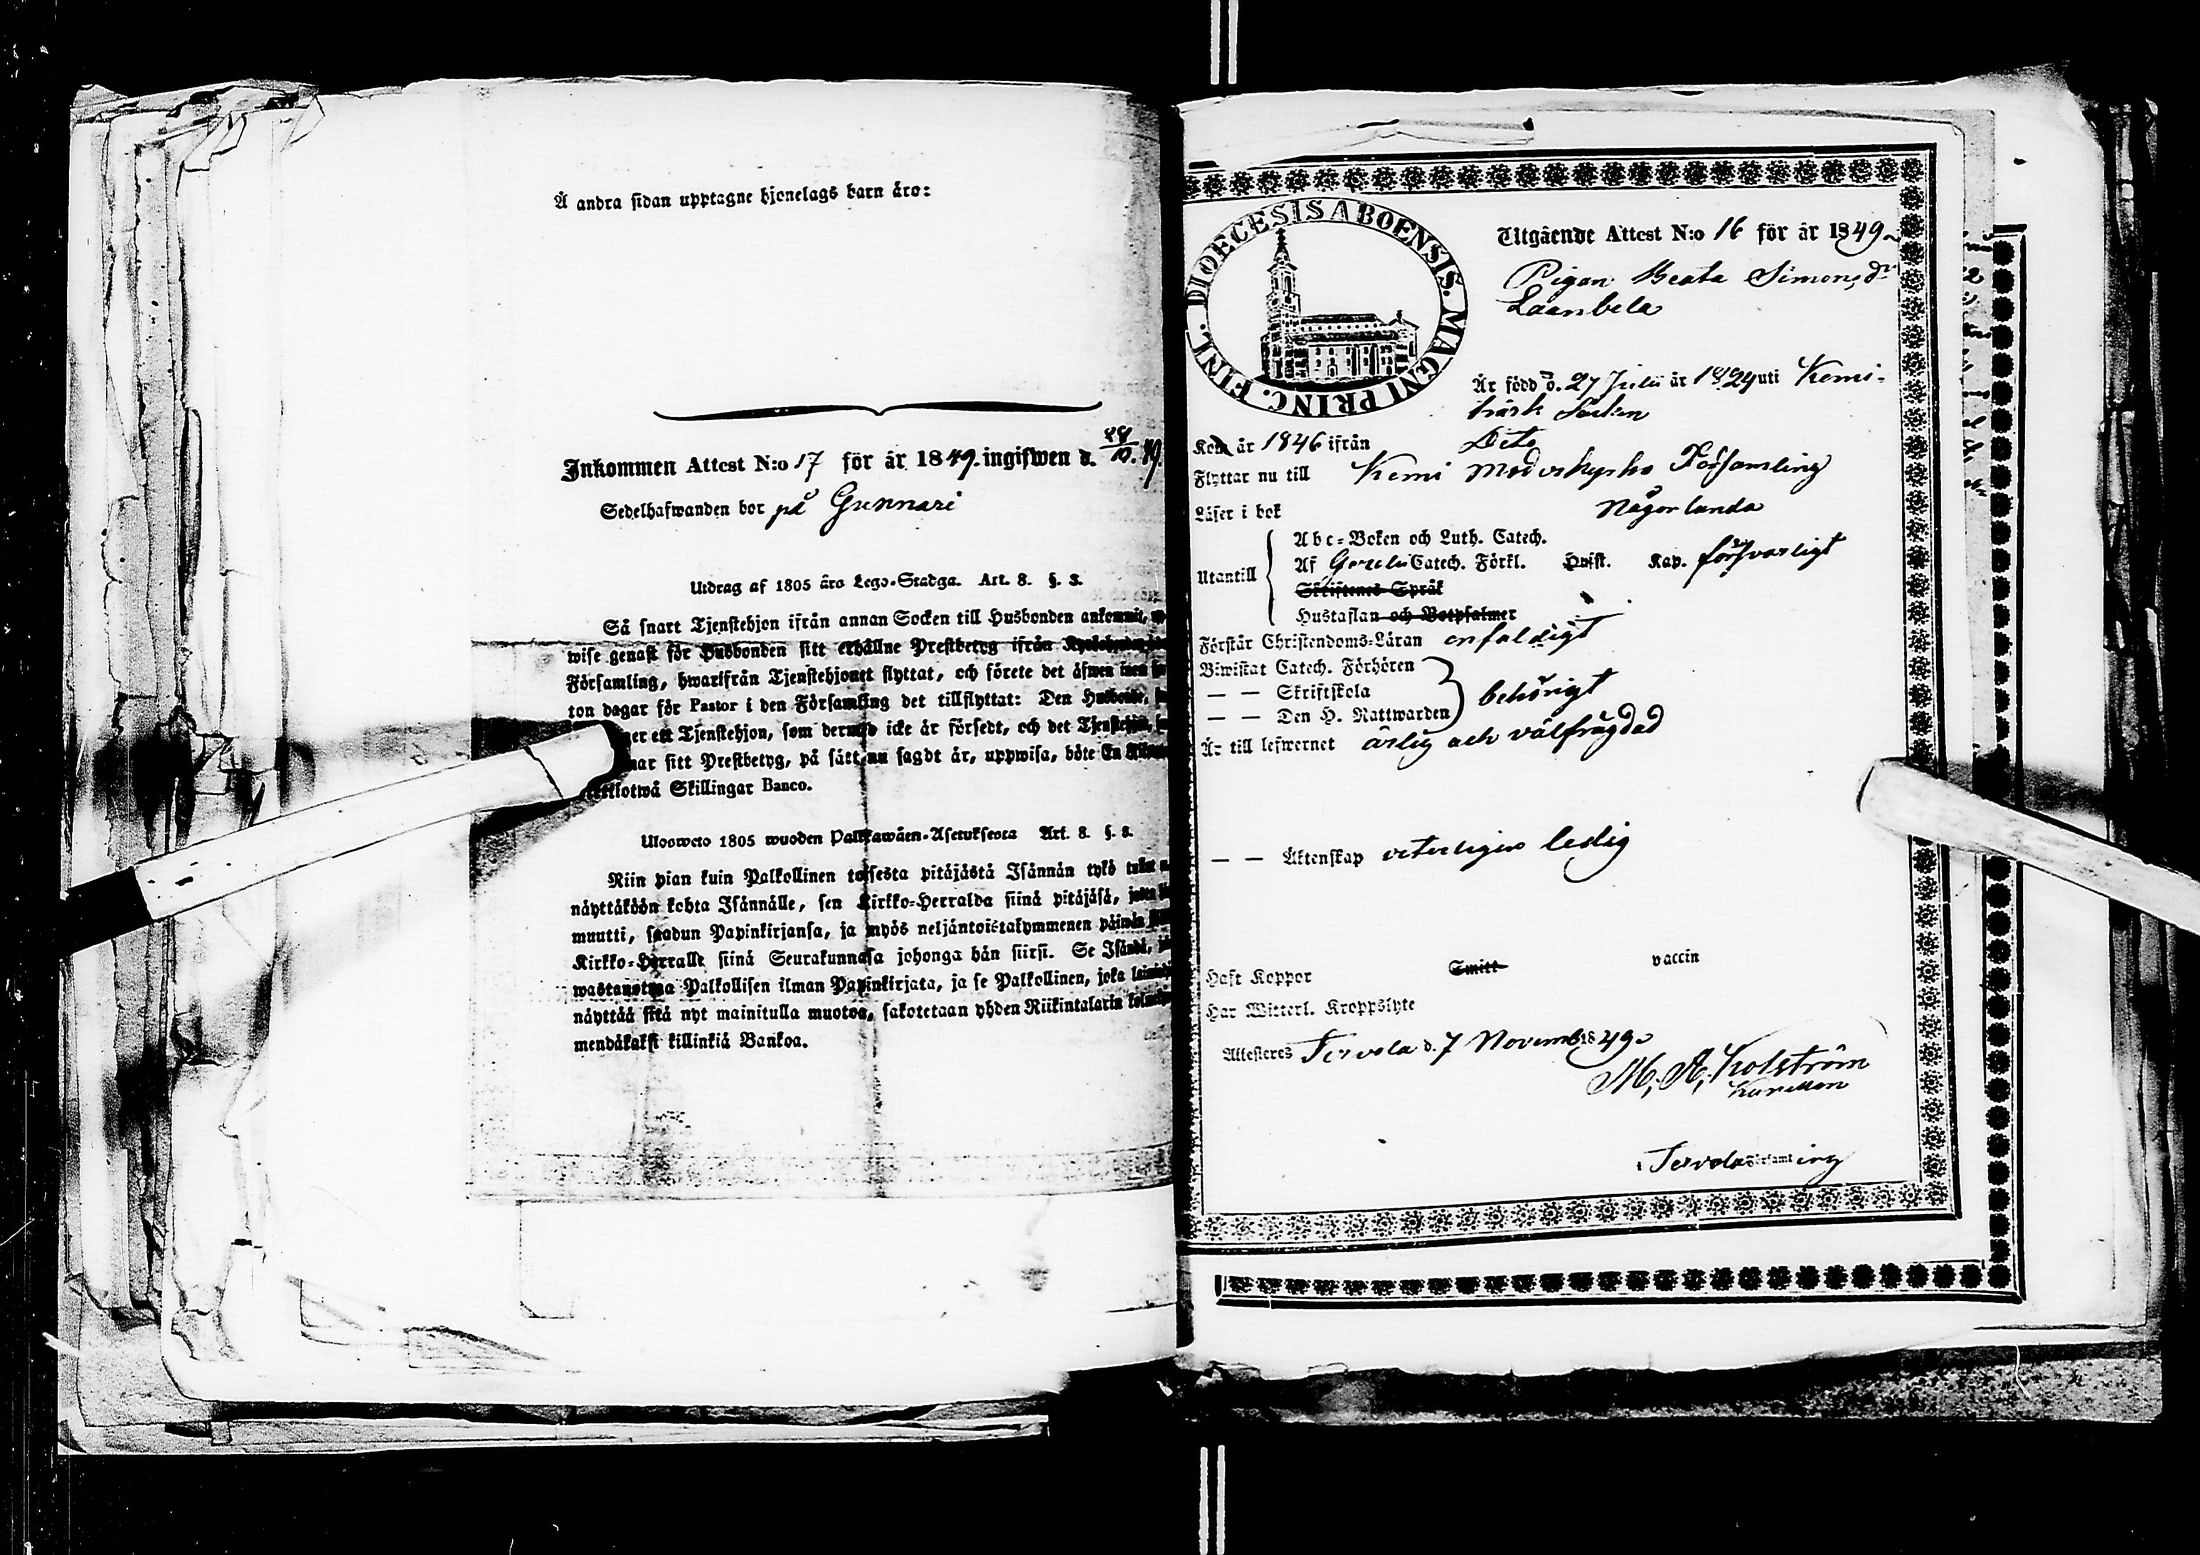 Å andra sidan upptagne hjonelags barn äro:
Inkommen Attest N:o 17 för år 1849. ingifwen d.
Sedelhafwanden bor på Gunnari
Utdrag af 1805 års Lego-Stadga. Art. 8. §. 3.
Så snart Tjenstehjon ifrån annan Socken till Husbonden ankommit,
wise genast för Husbonden sitt erhållne Prestbetyg ifrån
Församling, hwarifrån Tjenstehjonet flyttat, och förete det äfwen inom
ton dagar för Pastor i den Församling det tillflyttat: Den Husbonde,
ett Tjenstehjon, som dermed icke är försedt, och det Tjenstehjon,
sitt Prestbetyg, på sätt nu sagdt är, uppwisa, böte En
Skillingar Banco.
Ulosweto 1805 wuoden Palkkawäen-Asetuksesta Art. 8. §. 3.
Niin pian kuin Palkollinen toisesta pitäjästä Isännän tykö
näyttäköön kohta Isännälle, sen Kirkko-Herralda siinä pitäjäsä,
muutti, saadun Papinkirjansa, ja myös neljäntoistakymmenen päiwän
Kirkko-Herralle siinä Seurakunnasa johonga hän siirsi. Se Isändä,
wastanottaa Palkollisen ilman Papinkirjata, ja se Palkollinen, joka
näyttää sitä nyt mainitulla muotoa, sakotetaan yhden Riikintalarin
mendäkaksi killinkiä Bankoa.
DIOECESIS ABOENSIS. MAGNI PRINC. FINL.
Utgående Attest N:o 16 för år 1849
Pigan Beata Simonsdr
Är född d. 27 Julii år 1824 uti Kemi-
träsk Socken
Kom år 1846 ifrån Dito
Flyttar nu till Kemi Moderkyrko Församling
Läser i bok Någorlunda
Abc-Boken och Luth. Catech.
Utantill Af Catech. Förkl. Kap. försvarligt
Skriftenes Språk
Hustaflan och Botpsalmer
Förstår Christendoms-Läran enfaldigt
Biwistat Catech. Förhören
— — Skriftskola behörigt
— — Den H. Nattwarden
Är till lefwernet ärlig och välfrägdad
— — Äktenskap veterligen ledig
Haft Koppor Smitt vaccin
Har Witterl. Kroppslyte
Attesteras Tervola d. 7 Novemb 1849.
M. A. Holström
Tervola Församling